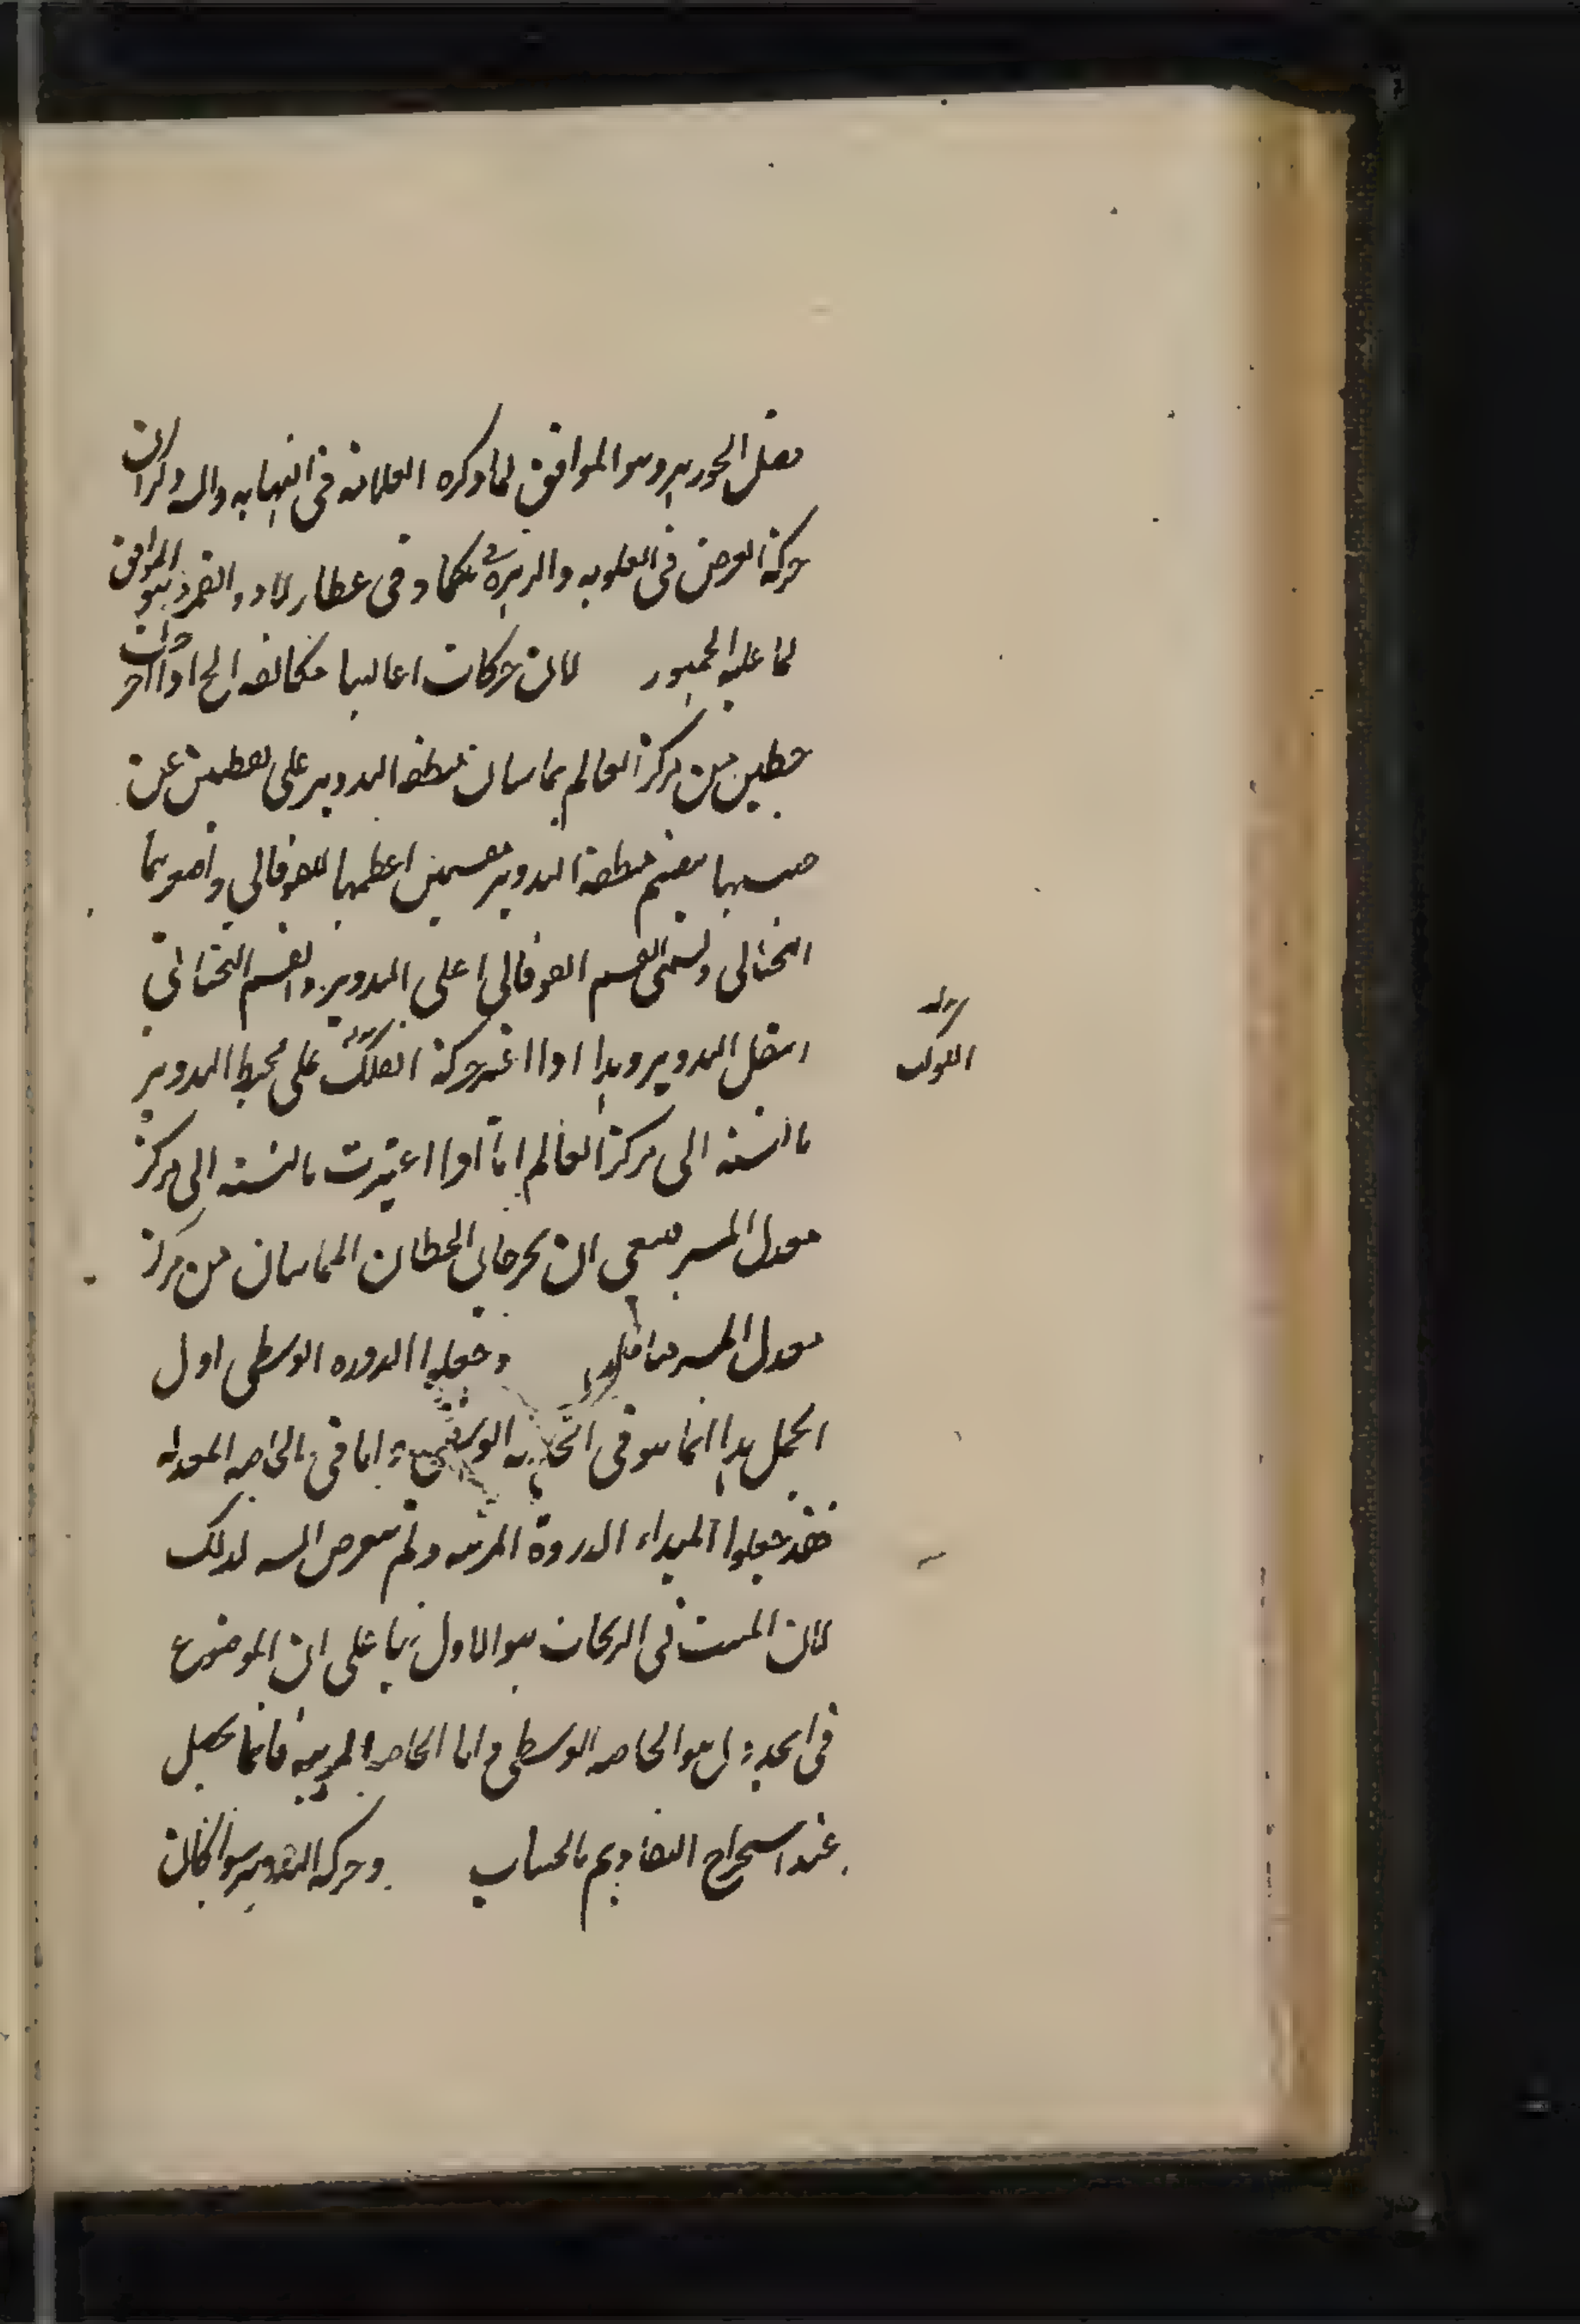 مثل الجوزهر وهو الموافق لما ذكره العلامة في النهاية والـ وذكر ان
حركة العرض في العلوية والزهرة هكذا وفي عطارد والقمر وهو الموافق
لما عليه الجمهور لان حركات اعاليها مخالفة الخ اذا اخرجت
خطين من مركز العالم يماسان منطقة التدوير على نقطتين عن
جنبيها ينقسم منطقة التدوير بقسمين اعظمهما الفوقاني واصغرهما
التحتاني ويسمى القسم الفوقاني اعلى التدوير والقسم التحتاني
اسفل التدوير وهذا اذا اعتبر حركة الفلك على محيط التدوير
الكوكب
بالنسبة الى مركز العالم اما اذا اعتبرت بالنسبة الى مركز
معدل المسير فينبغي ان يخرج الخطان المماسان من مركز
معدل المسير وجعلوا الذروة الوسطى اول
الحمل هذا انما هو في الخاصة الوسطى واما في الخاصة المعدلة
فقد جعلوا المبداء الذروة المرئية ولم يتعرض اليه لذلك
لان المثبت في الزيجات هو الاول بناء على ان الموضوع
في الجدول هو الخاصة الوسطى واما الخاصة المرئية فانما يحصل
عند استخراج التقاويم بالحساب وحركة التدوير سواء كان